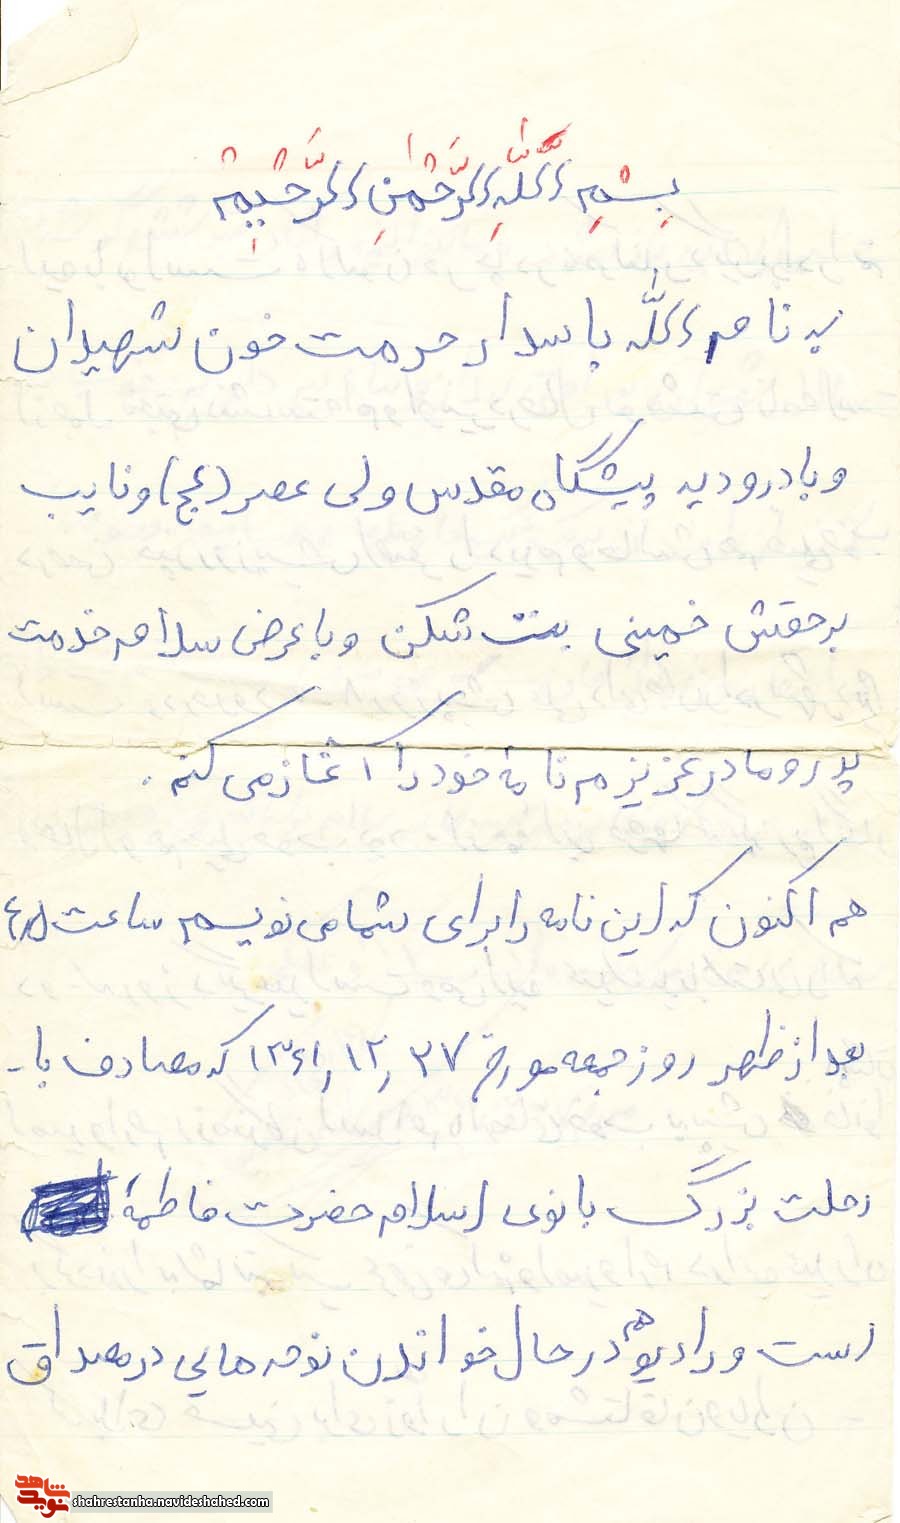 بِسْمِ اللَّهِ الرَّحْمٰنِ الرَّحِیمْ
به نام الله پاسدار حرمت خون شهیدان
و با درود به پیشگاه مقدس ولی عصر (عج) و نایب
برحقش خمینی بت شکن و با عرض سلام خدمت
پدر و مادر عزیزم نامهٔ خود را آغاز می کنم .
هم اکنون که این نامه را برای شما می نویسم ساعت
بعد از ظهر روز جمعه مورخ ۲۷ ,۱۲ ,۱۳۶۱ که مصادف با -
رحلت بزرگ بانوی اسلام حضرت فاطمهٔ
است و رادیو هم در حال خواندن نوحه هایی در مصداق
نوید شاهد
shahrestanha.navideshahed.com